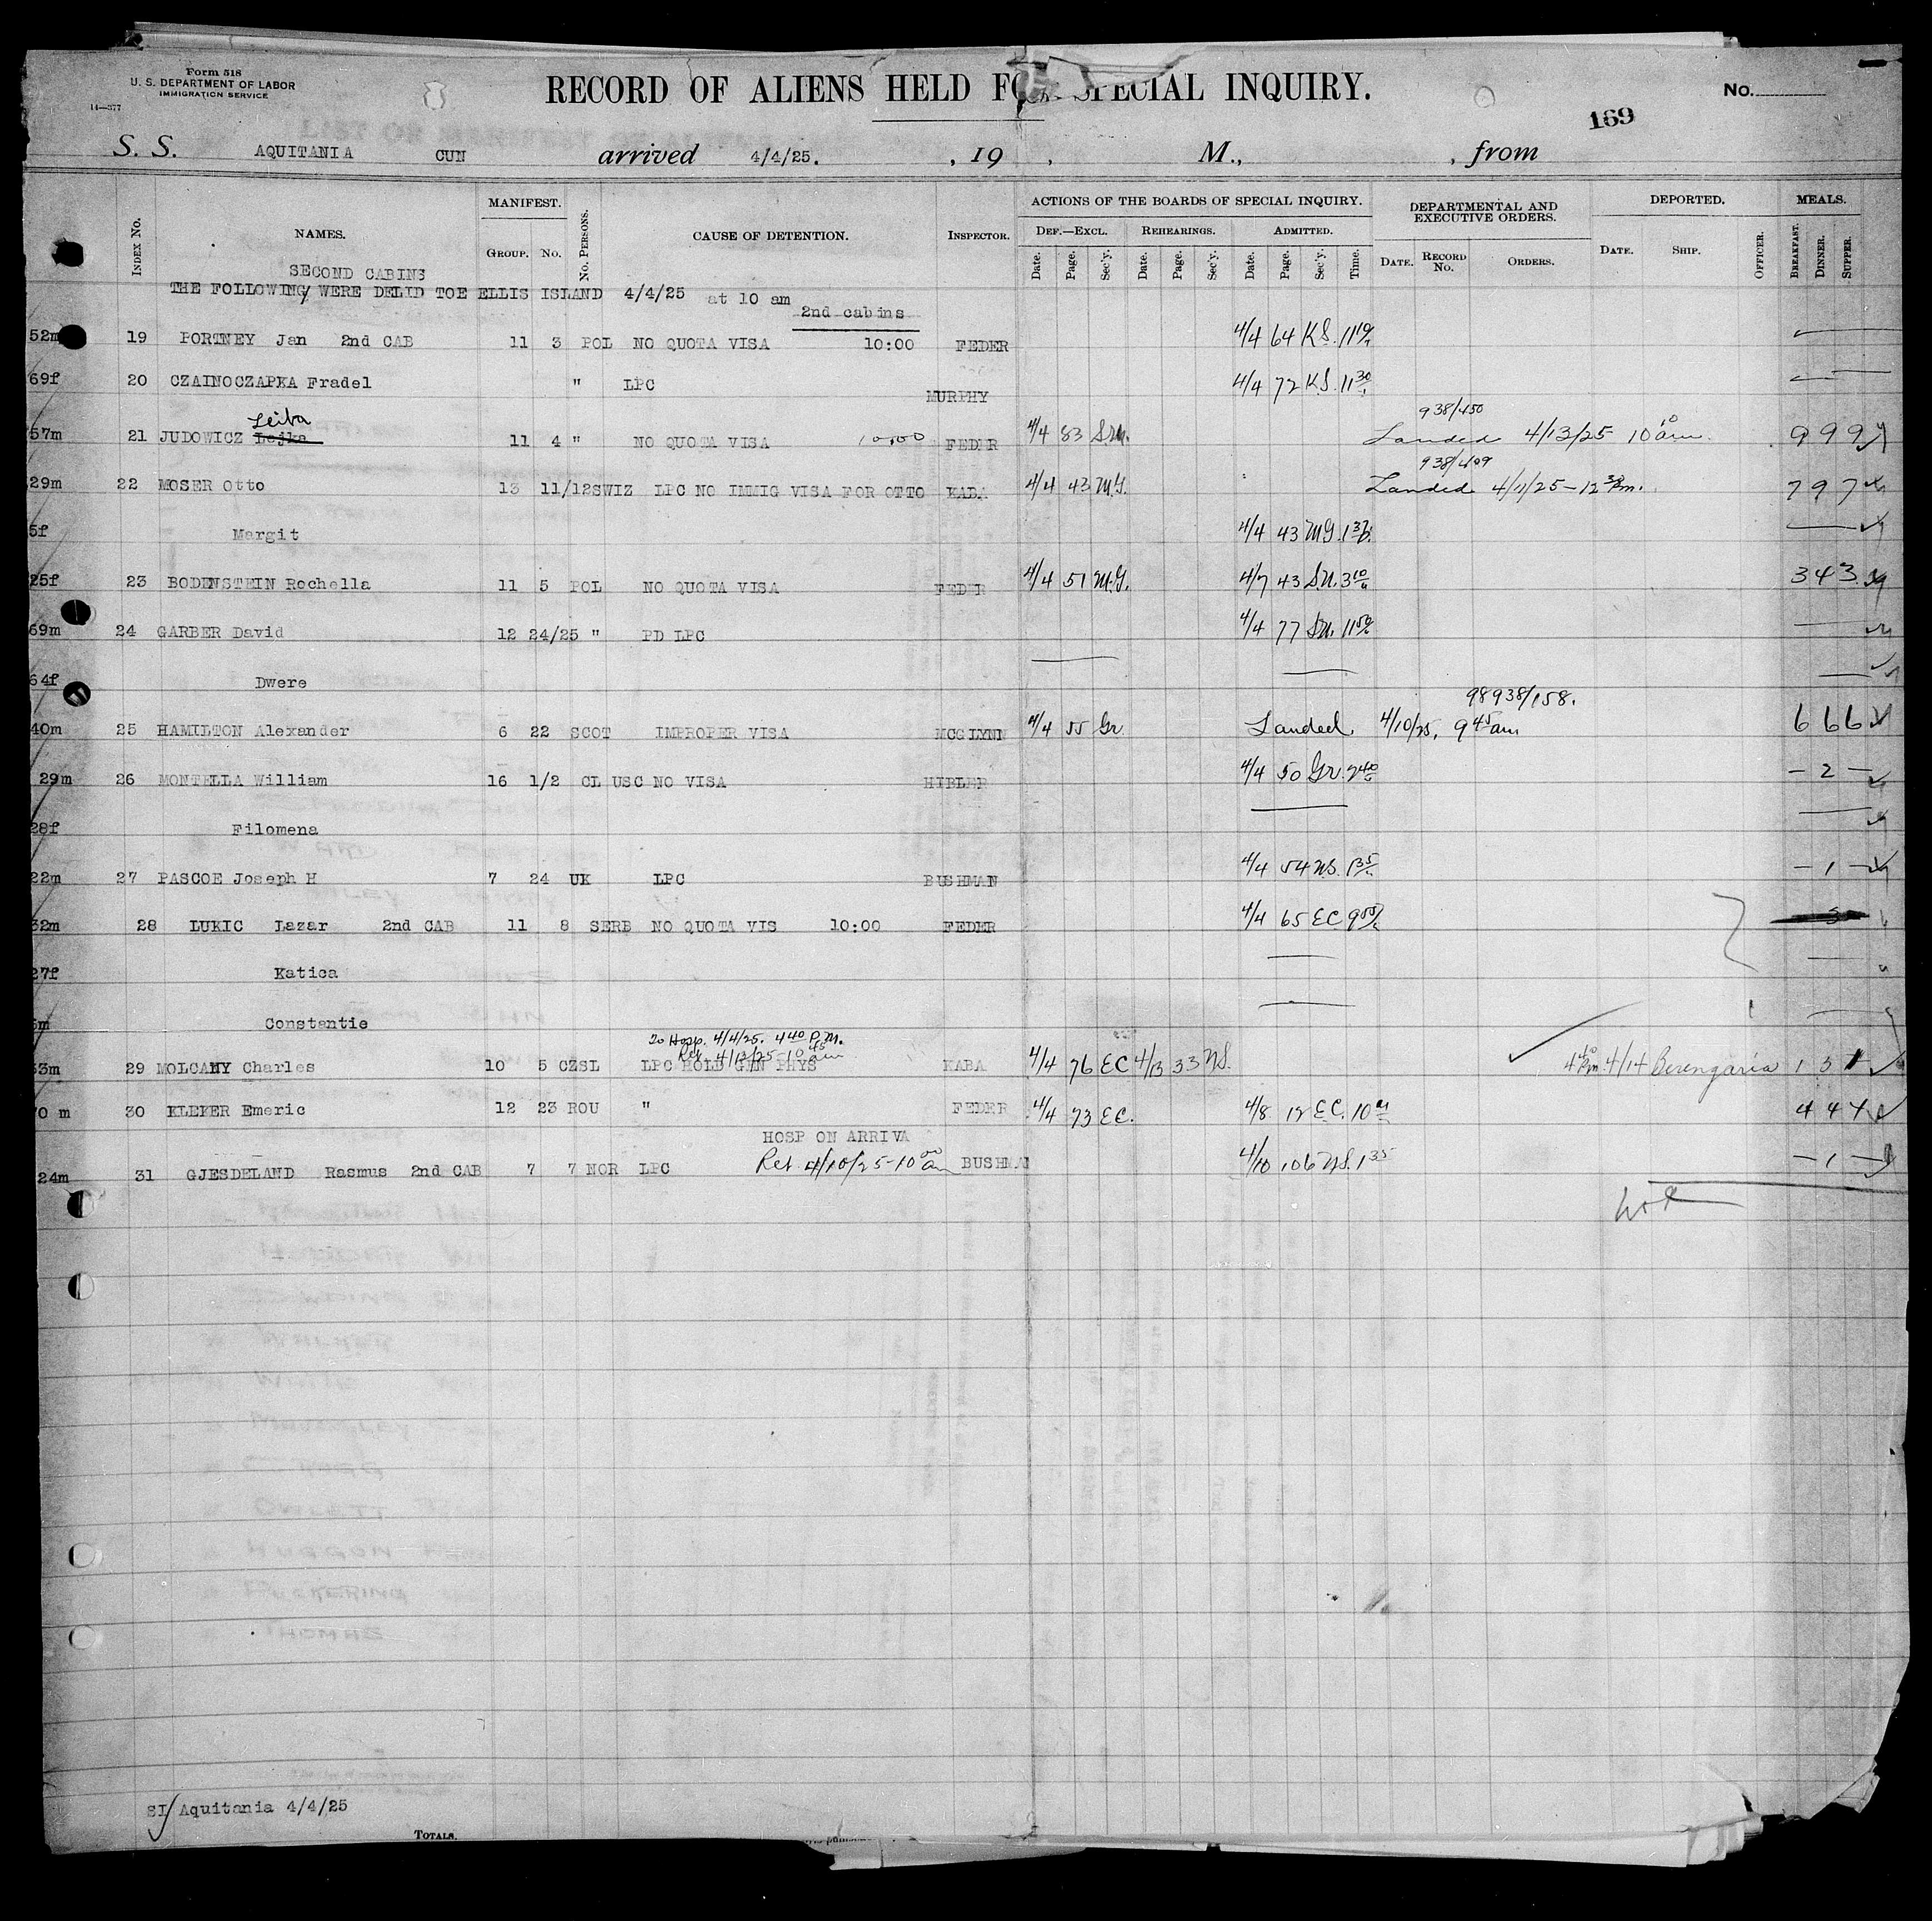 Form 518
U. S. DEPARTMENT OF LABOR
IMMIGRATION SERVICE
14—377
RECORD OF ALIENS HELD FO SPECIAL INQUIRY.
No.
169
S. S. AQUITANIA CUN arrived 4/4/25. , 19 , M., , from
INDEX No. NAMES. MANIFEST. GROUP. No. No. PERSONS. CAUSE OF DETENTION. INSPECTOR. ACTIONS OF THE BOARDS OF SPECIAL INQUIRY. DEF.—EXCL. Date. Page. Sec'y. REHEARINGS. Date. Page. Sec'y. ADMITTED. Date. Page. Sec'y. Time. DEPARTMENTAL AND EXECUTIVE ORDERS. DATE. RECORD No. ORDERS. DEPORTED. DATE. SHIP. OFFICER. MEALS. BREAKFAST. DINNER. SUPPER.
SECOND CABINS
THE FOLLOWING WERE DELID TOE ELLIS ISLAND 4/4/25 at 10 am
2nd cabins
52m 19 PORTNEY Jan 2nd CAB 11 3 POL NO QUOTA VISA 10:00 FEDER 4/4 64 K.S. 11
69f 20 CZAINOCZAPKA Fradel " LPC MURPHY 4/4 72 K.S. 11 30
Leiba 938/450
57m 21 JUDOWICZ Lejka 11 4 " NO QUOTA VISA 10:00 FEDER 4/4 83 Landed 4/13/25 10 10 am. 9 9 9
938/409
29m 22 MOSER Otto 13 11/12 SWIZ LPC NO IMMIG VISA FOR OTTO KABA 4/4 43 M.G. Landed 4/11/25 - 12 30 Pm. 7 9 7
5f Margit 4/4 43 M.G.
25f 23 BODENSTEIN Rochella 11 5 POL NO QUOTA VISA FEDER 4/4 51 M.G. 4/7 43 S.N. 3 10 3 4 3
69m 24 GARBER David 12 24/25 " PD LPC 4/4 77 11 50
64f Dwere
98938/158.
40m 25 HAMILTON Alexander 6 22 SCOT IMPROPER VISA MCGLYNN 4/4 55 Gr Landed 4/10/25, 9 45 am 6 6 6
29m 26 MONTELLA William 16 1/2 CL USC NO VISA HIBLER 4/4 50 Gr. 2 40 — 2 —
28f Filomena
22m 27 PASCOE Joseph H 7 24 UK LPC BUSHMAN 4/4 54 N.S. 1 35 — 1 —
32m 28 LUKIC Lazar 2nd CAB 11 8 SERB NO QUOTA VIS 10:00 FEDER 4/4 65 EC
27f Katica
m Constantie
To Hosp. 4/4/25. 4 40 P.M.
Ret. 4/13/25 - 10 45 am
33m 29 MOLCANY Charles 10 5 CZSL LPC HOLD GYN PHYS KABA 4/4 76 EC 4/13 33 N.S. 4 40 Pm. 4/14 Berengaria 1 3 1
0 m 30 KLEKER Emeric 12 23 ROU " FEDER 4/4 73 EC. 4/8 12 E.C. 10 4 4 4
HOSP ON ARRIVA
24m 31 GJESDELAND Rasmus 2nd CAB 7 7 NOR LPC Ret. 4/10/25 - 10 00 am BUSHMAN 4/10 106 N.S. 1 35 — 1 —
SI/ Aquitania 4/4/25
TOTALS.